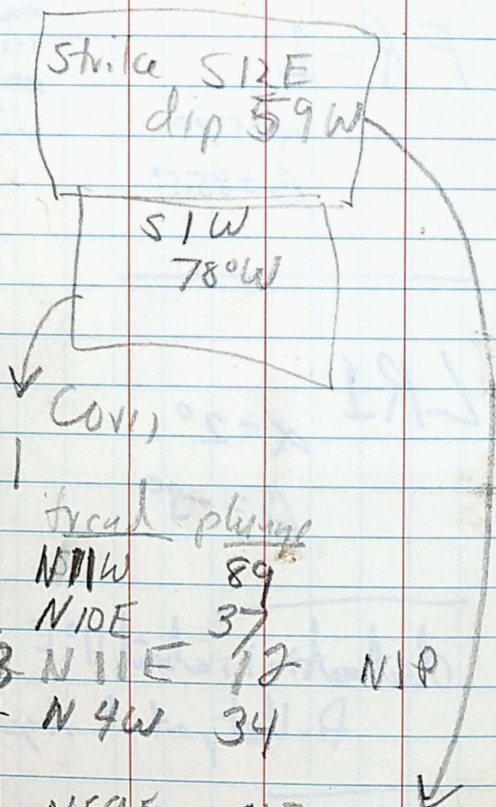 Strike S12E
dip 59W
S1W
78°W
Cov.
1
trend plunge
N11W 89
N10E 37
3 N11E 12 NSP
N4W 34